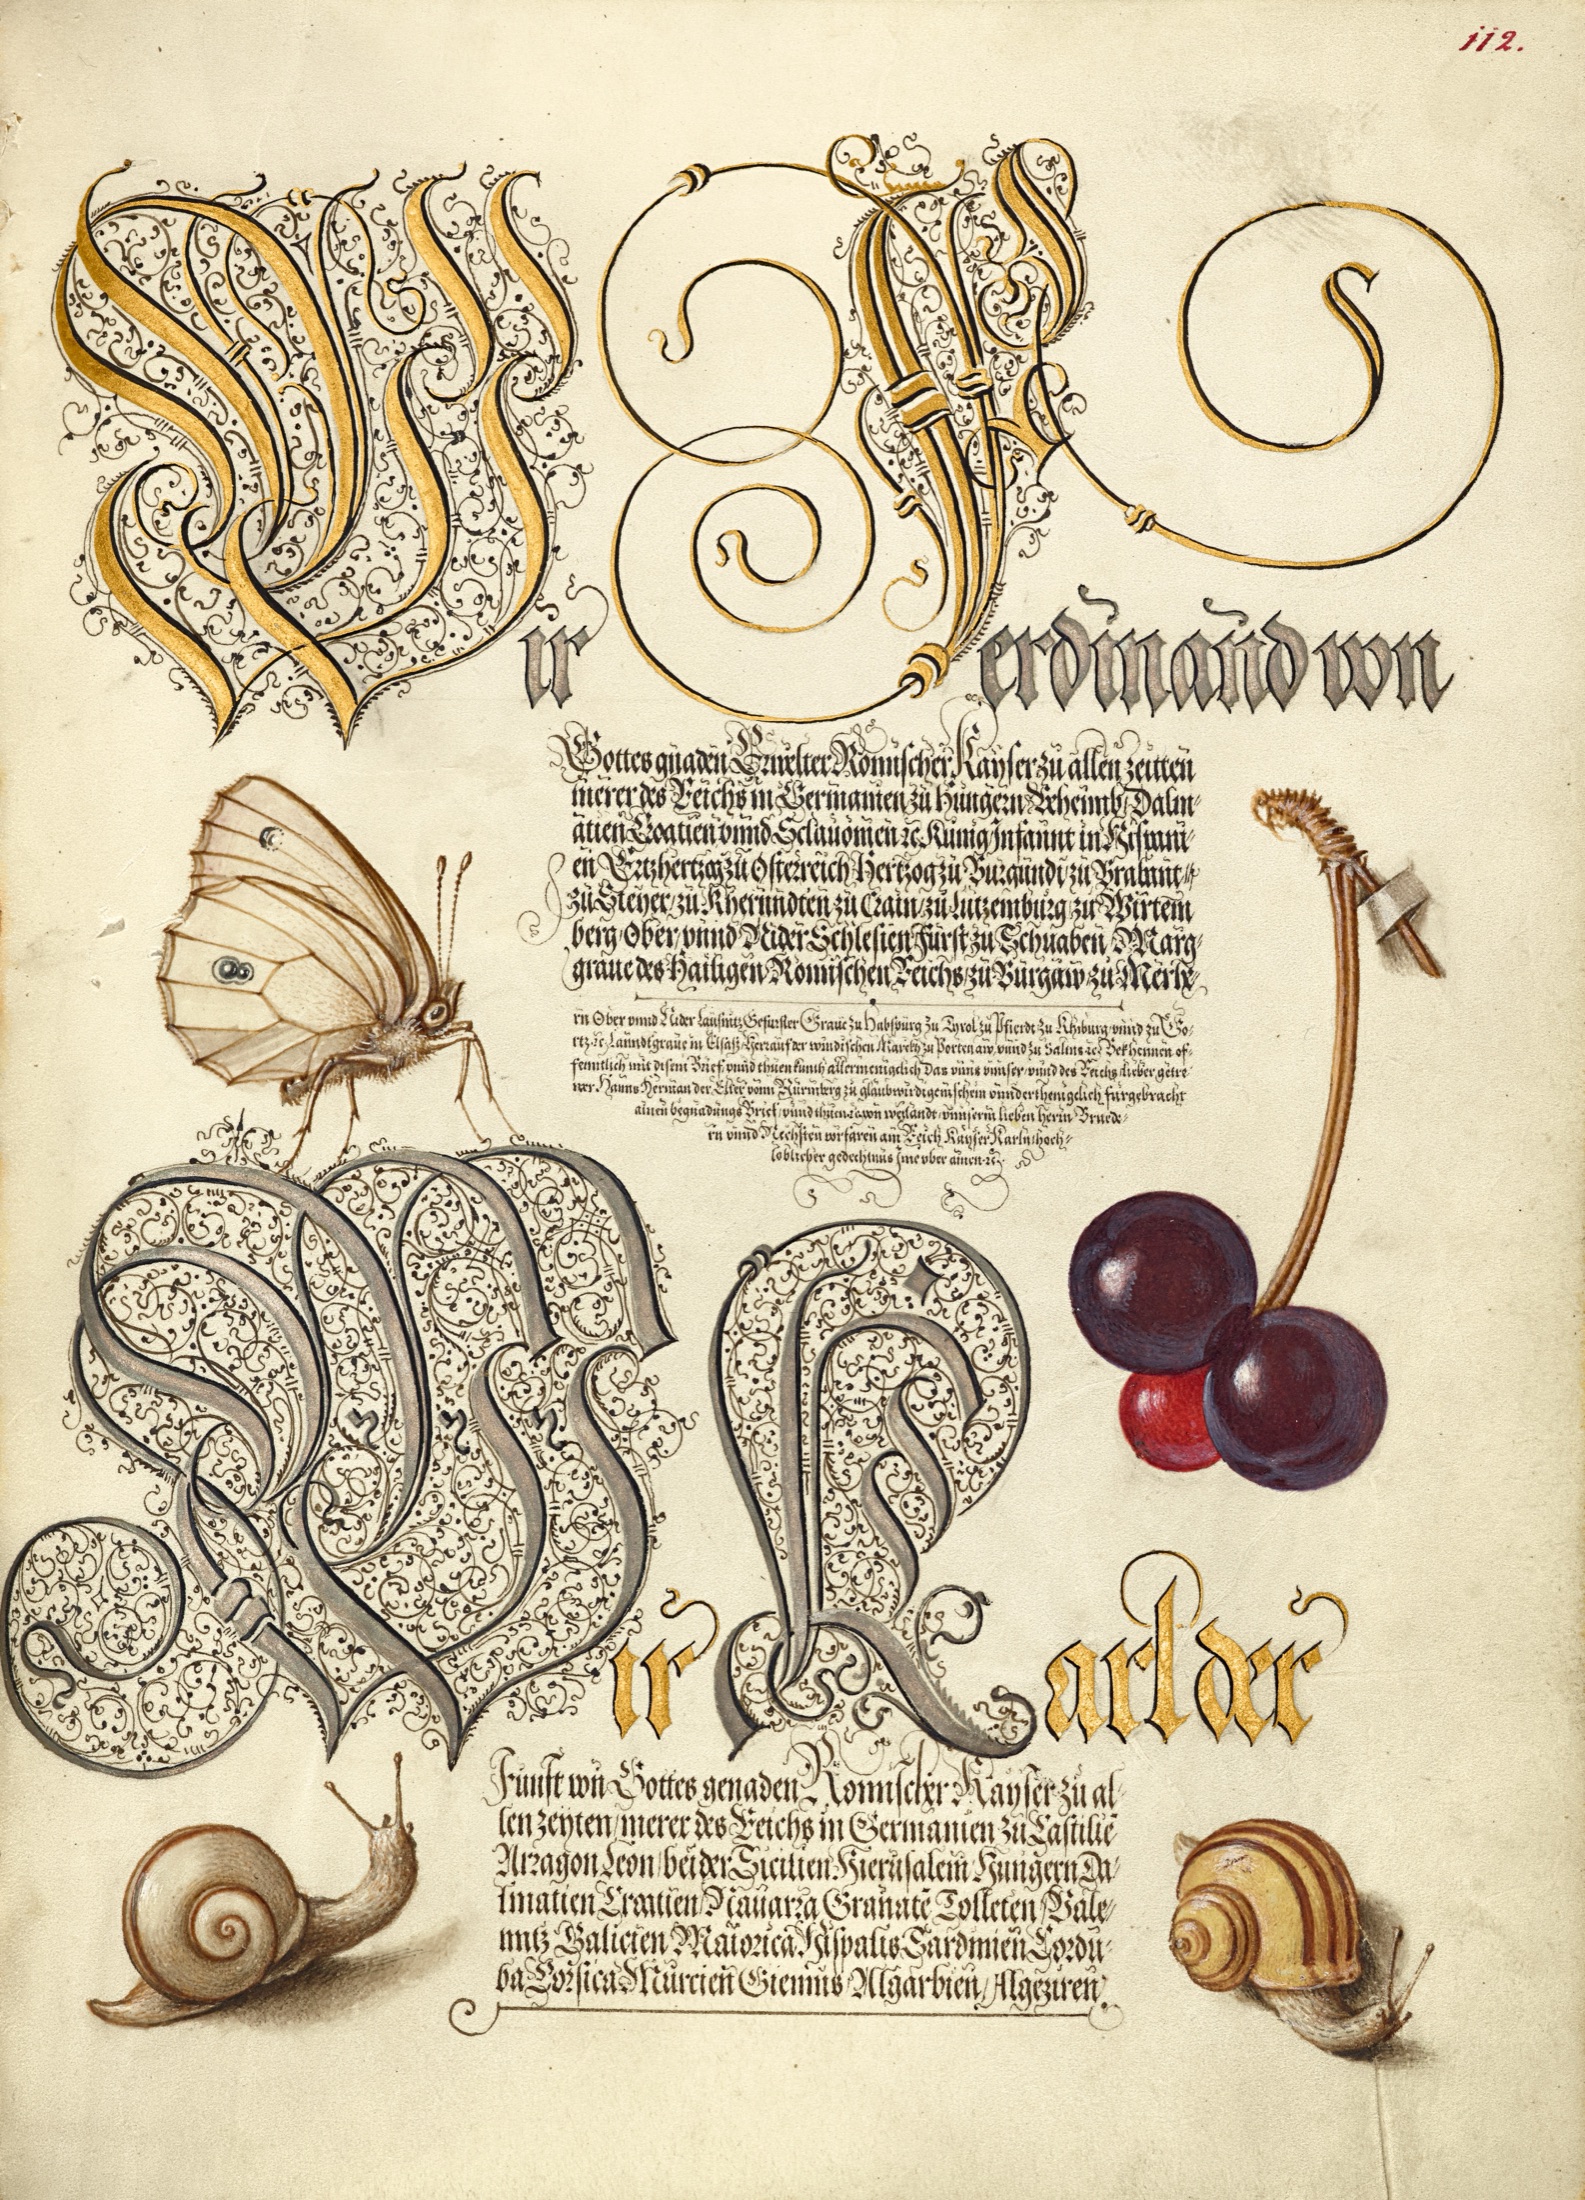 112.
Wir Ferdinand von
Gottes gnaden Erwelter Römischer Kayser zu allen zeitten
merer des Reichs in Germanien zu Hungern Beheimb Dalm-
atien Croatien vnnd Sclauonien ꝛc Kunig Infannt in Hispani-
en Ertzhertzog zu Osterreich Hertzog zu Burgundi zu Brabant
zu Steyer zu Kherundten zu Crain zu Lutzemburg zu Wirtem
berg Ober vnnd Nider Schlesien Furst zu Schuaben Marg-
graue des Hailigen Romischen Reichs zu Burgaw zu Merh-
rn Ober vnnd Nider Lausnitz Gefurster Graue zu Habspurg zu Tyrol zu Pfierdt zu Khiburg vnnd zu Go-
rtz ꝛc Lanndtgraue in Elsass Herr auf der windischen March zu Portenaw vnnd zu Salins ꝛc Bekhennen of-
fenntlich mit disem Brief vnnd thuen kunth allermeniglich Das vnns vnnser vnnd des Reichs lieber getre
wer Hanns Herman der Elter vonn Nurmberg zu glaubwirdigem schein vnnderthenigclich furgebracht
ainen begnadungs Brief vnnd thuen von weilandt vnnserm lieben Herrn Bruede-
rn vnnd Nechsten vorfaren am Reich Kayser Karln hoch-
loblicher gedechtnus Jme vber ainen ꝛc
Wir Karl der
Funft von Gottes genaden Romischer Kayser zu al-
len zeyten merer des Reichs in Germanien zu Castilie
Arragon Leon beider Sicilien Hierusalem Hungern Da-
lmatien Croatien Nauarra Granate Tolleten Vale-
nntz Galicien Maiorica Hispalis Sardinien Cordu-
ba Corsica Murcien Giennis Algarbien Algeziren